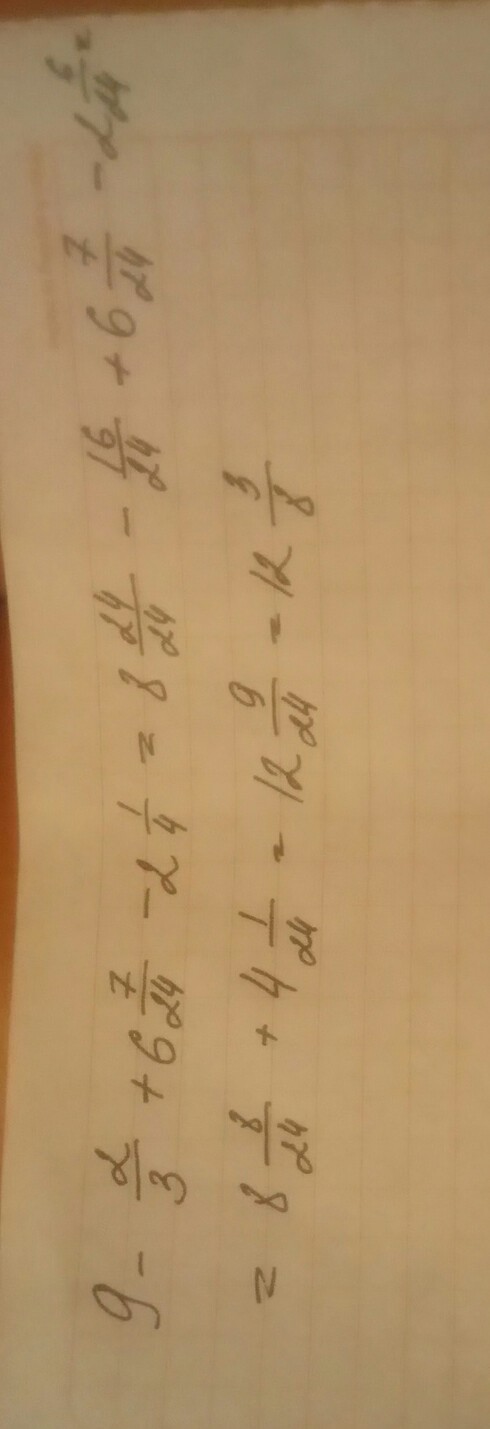 9 - 2/3 + 6 7/24 - 2 1/4 = 8 24/24 - 16/24 + 6 7/24 - 2 6/24 =
= 8 8/24 + 4 1/24 = 12 9/24 = 12 3/8